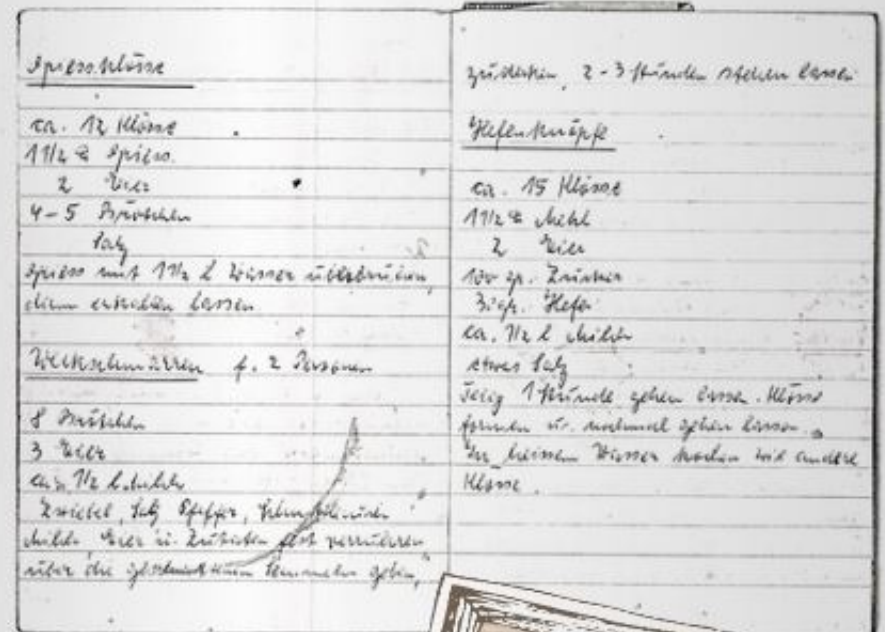 Griessklösse
ca. 12 Klösse
1 1/2 ℔ Griess.
2 Eier
4-5 Brötchen
Salz
Griess mit 1 1/2 l Wasser überbrühen,
dann erkalten lassen.
Weckschmarren f. 2 Personen
8 Brötchen
3 Eier
ca. 1/2 l. Milch
Zwiebel, Salz Pfeffer,
Milch, Eier u. Zutaten fest verrühren
über die geschnittenen Semmeln geben,
zudecken, 2-3 Stunden stehen lassen
Hefenknöpfe
ca. 15 Klösse
1 1/2 ℔ Mehl
2 Eier
100 gr. Zucker
gr. Hefe
ca. 1/2 l Milch
etwas Salz
Teig 1 Stunde gehen lassen. Klösse
formen u. nochmal gehen lassen.
In heissem Wasser kochen wie andere
Klösse.